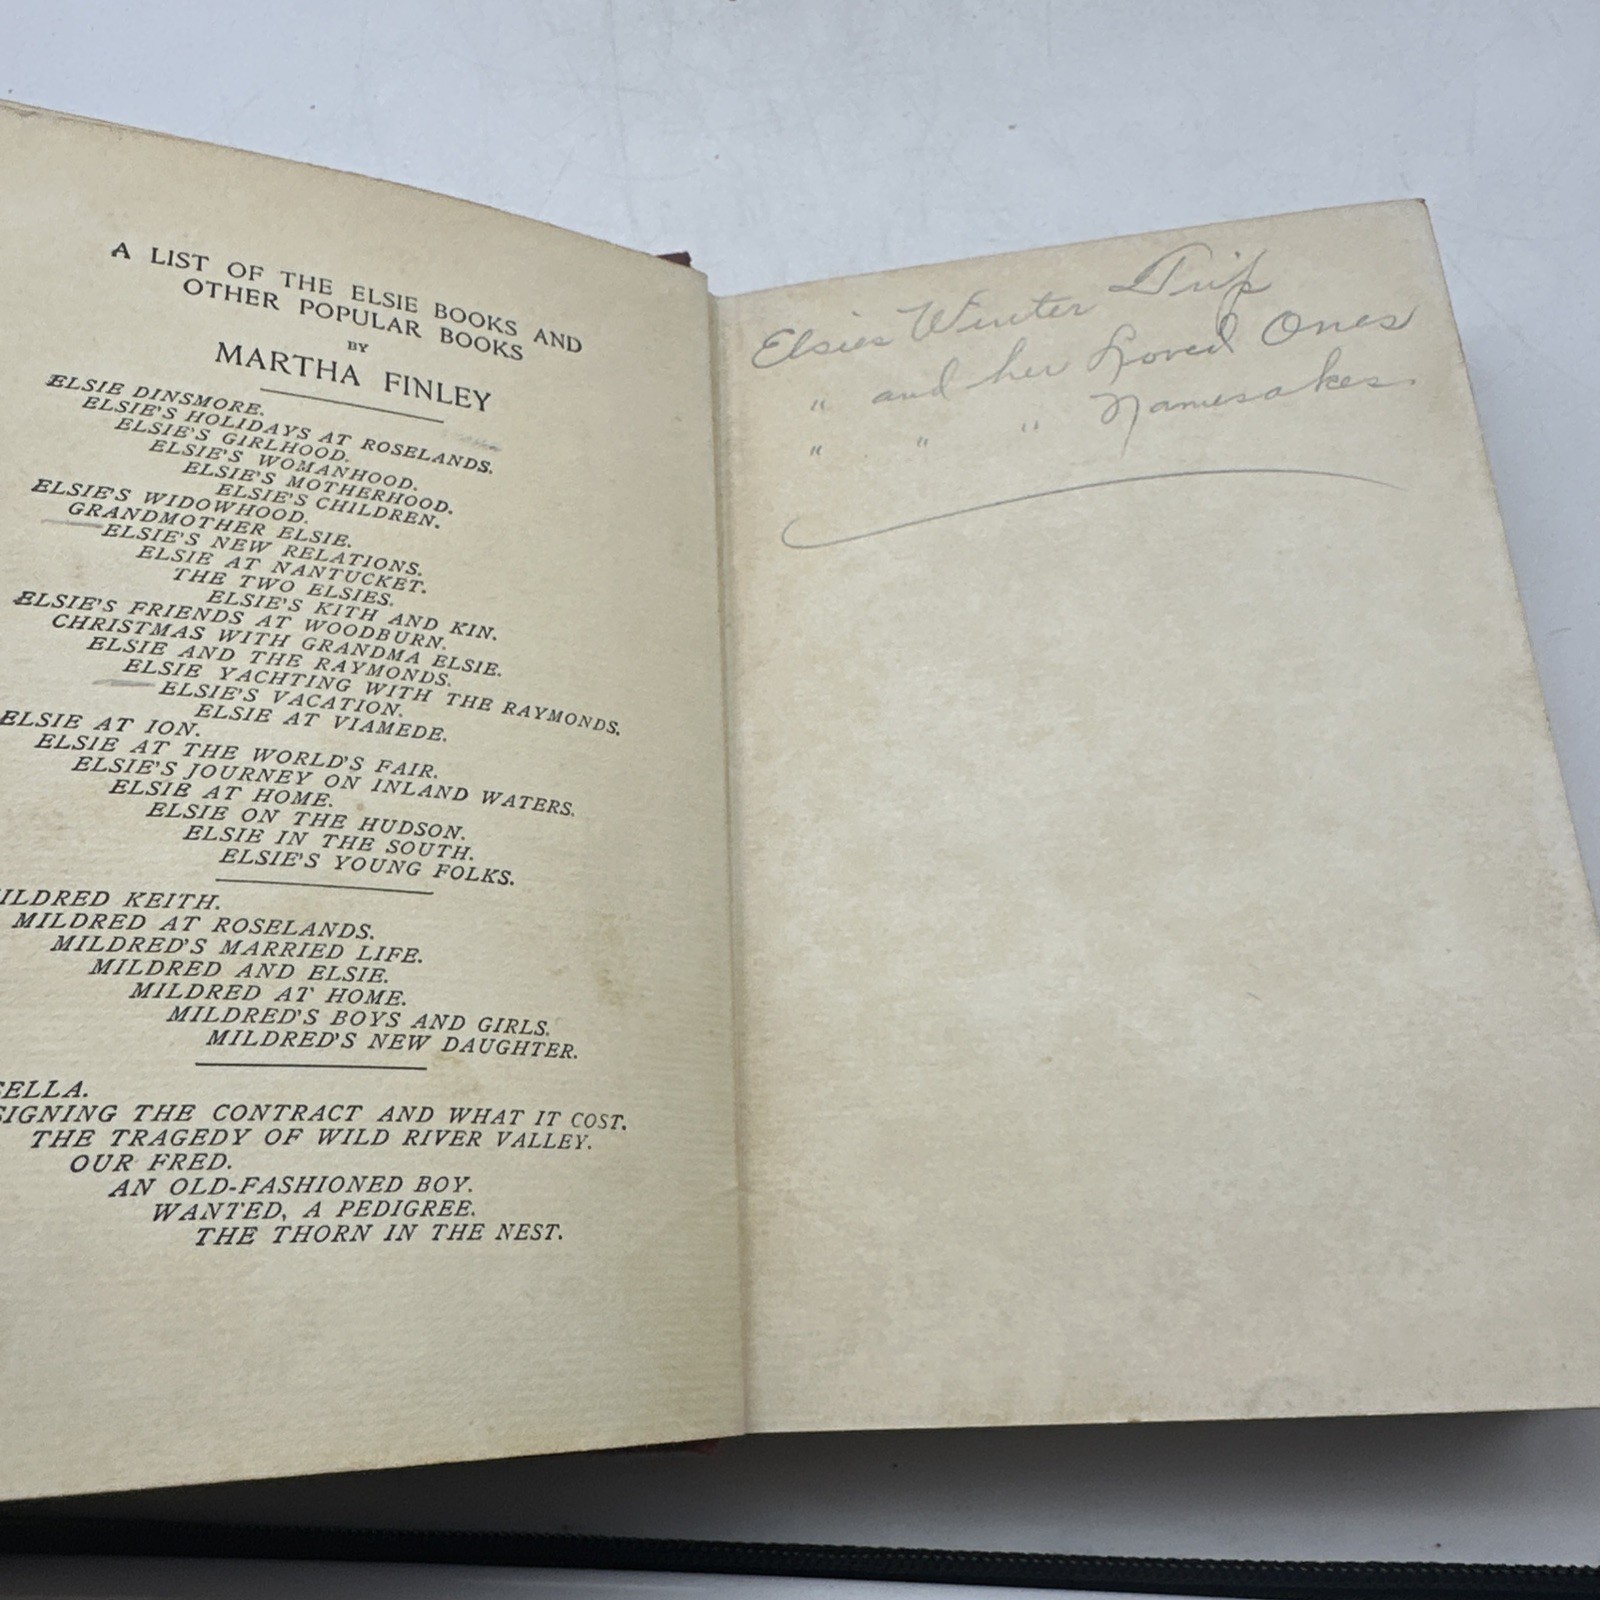 A LIST OF THE ELSIE BOOKS AND
OTHER POPULAR BOOKS
BY
MARTHA FINLEY
ELSIE DINSMORE.
ELSIE'S HOLIDAYS AT ROSELANDS.
ELSIE'S GIRLHOOD.
ELSIE'S WOMANHOOD.
ELSIE'S MOTHERHOOD.
ELSIE'S CHILDREN.
ELSIE'S WIDOWHOOD.
GRANDMOTHER ELSIE.
ELSIE'S NEW RELATIONS.
ELSIE AT NANTUCKET.
THE TWO ELSIES.
ELSIE'S KITH AND KIN.
ELSIE'S FRIENDS AT WOODBURN.
CHRISTMAS WITH GRANDMA ELSIE.
ELSIE AND THE RAYMONDS.
ELSIE YACHTING WITH THE RAYMONDS.
ELSIE'S VACATION.
ELSIE AT VIAMEDE.
ELSIE AT ION.
ELSIE AT THE WORLD'S FAIR.
ELSIE'S JOURNEY ON INLAND WATERS.
ELSIE AT HOME.
ELSIE ON THE HUDSON.
ELSIE IN THE SOUTH.
ELSIE'S YOUNG FOLKS.
ILDRED KEITH.
MILDRED AT ROSELANDS.
MILDRED'S MARRIED LIFE.
MILDRED AND ELSIE.
MILDRED AT HOME.
MILDRED'S BOYS AND GIRLS.
MILDRED'S NEW DAUGHTER.
SELLA.
SIGNING THE CONTRACT AND WHAT IT COST.
THE TRAGEDY OF WILD RIVER VALLEY.
OUR FRED.
AN OLD-FASHIONED BOY.
WANTED, A PEDIGREE.
THE THORN IN THE NEST.
Elsies Winter Trip
" and her Loved Ones
" " " Namesakes.